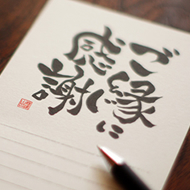 ご縁に
感謝